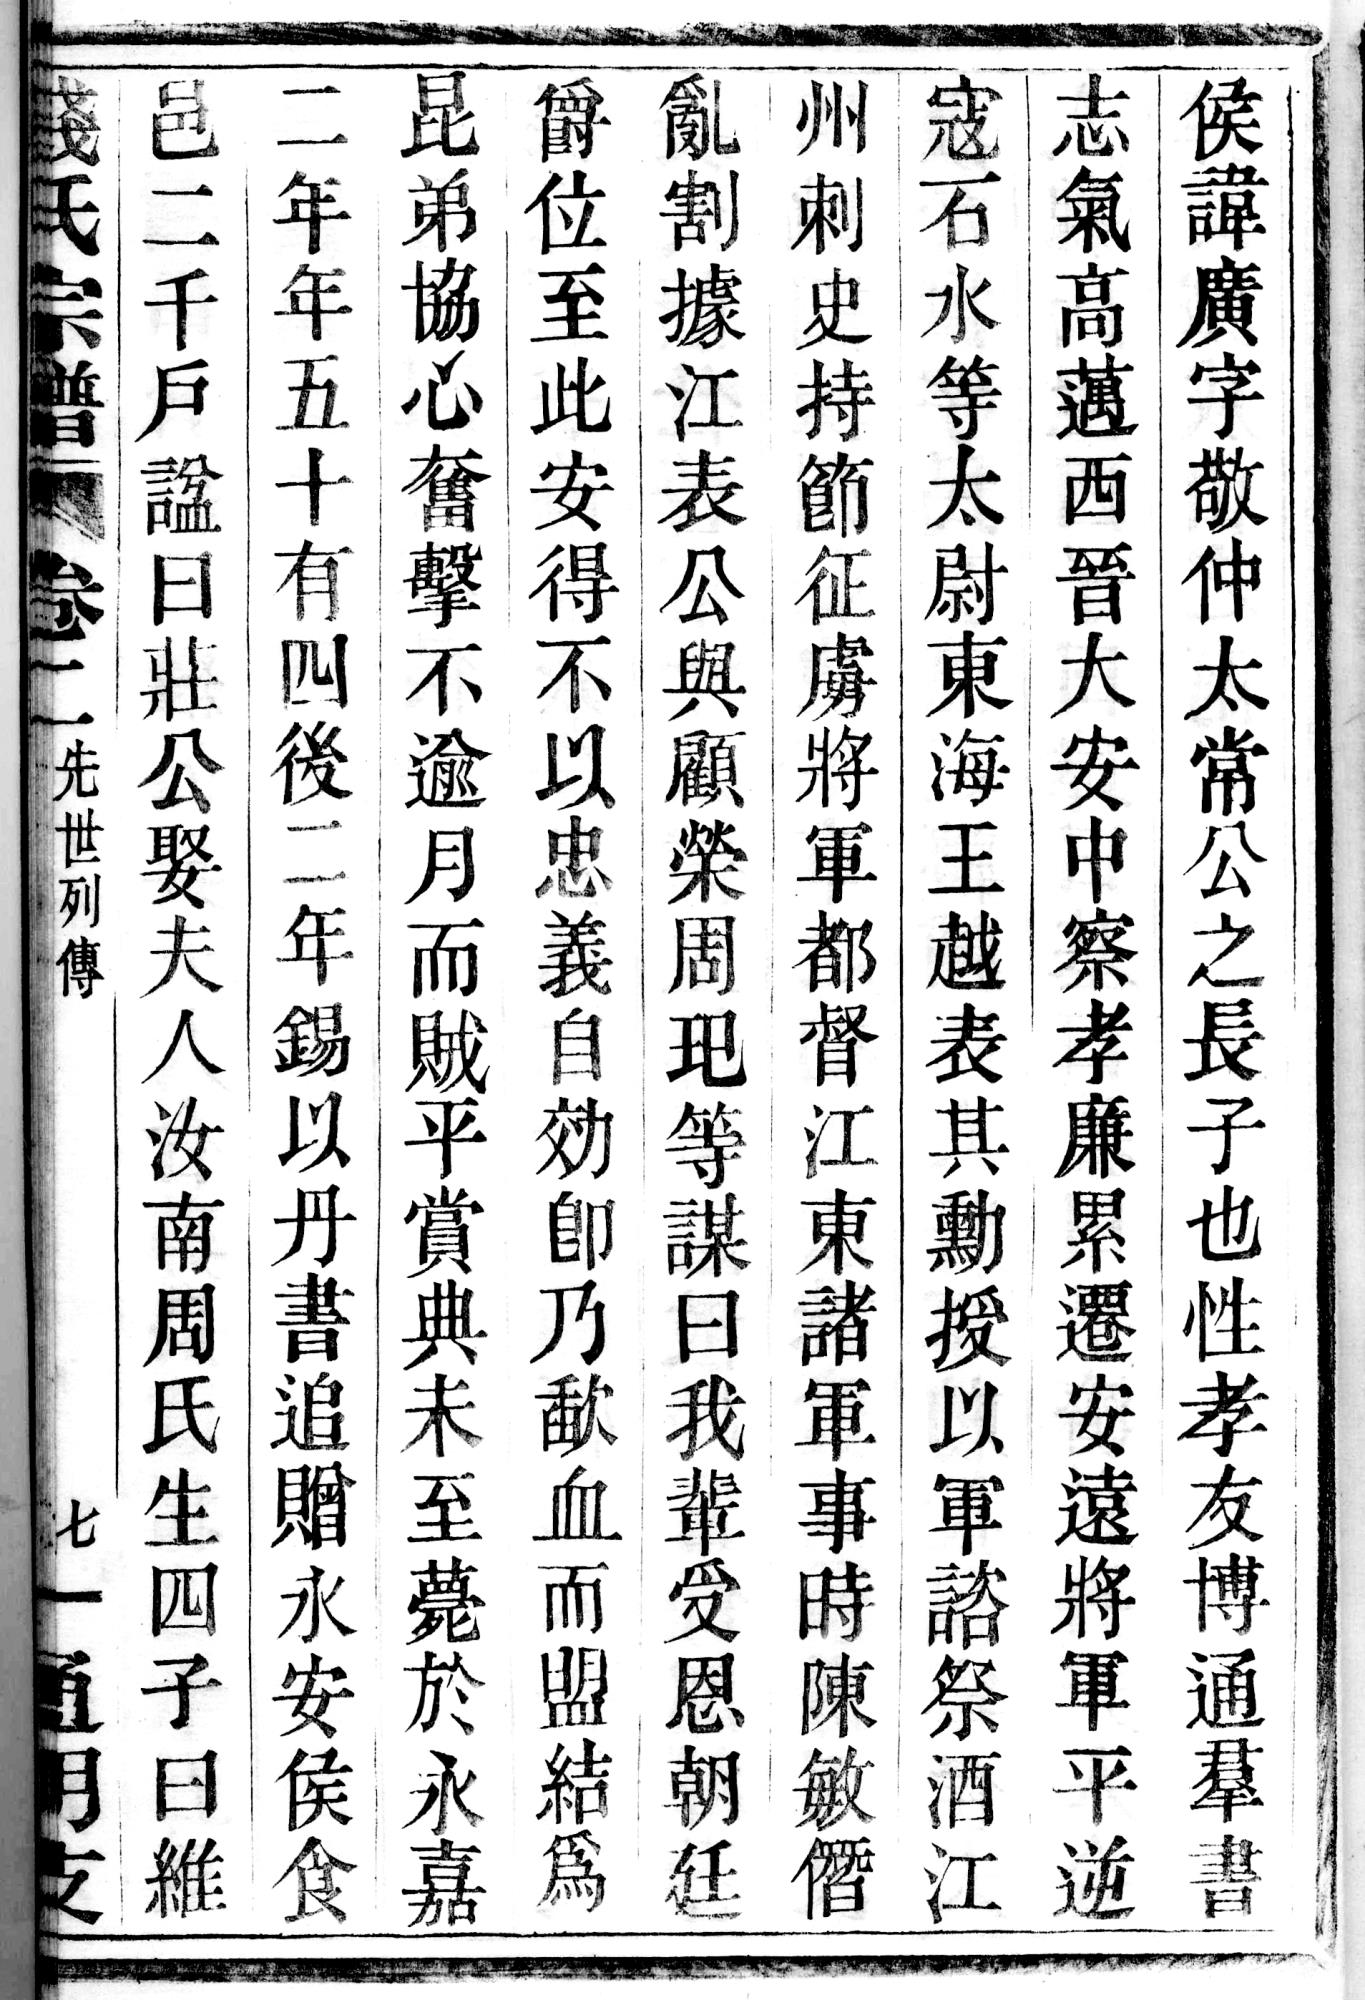 侯諱廣字敬仲太常公之長子也性孝友博通羣書
志氣高邁西晉大安中察孝廉累遷安遠將軍平逆
寇石水等太尉東海王越表其勳授以軍諮祭酒江
州刺史持節征虜將軍都督江東諸軍事時陳敏僭
亂割據江表公與顧榮周玘等謀曰我輩受恩朝廷
爵位至此安得不以忠義自効卽乃歃血而盟結爲
昆弟協心奮擊不逾月而賊平賞典未至薨於永嘉
二年年五十有四後二年錫以丹書追贈永安侯食
邑二千戶諡曰莊公娶夫人汝南周氏生四子曰維
錢氏宗譜 卷二 先世列傳 七 通明支